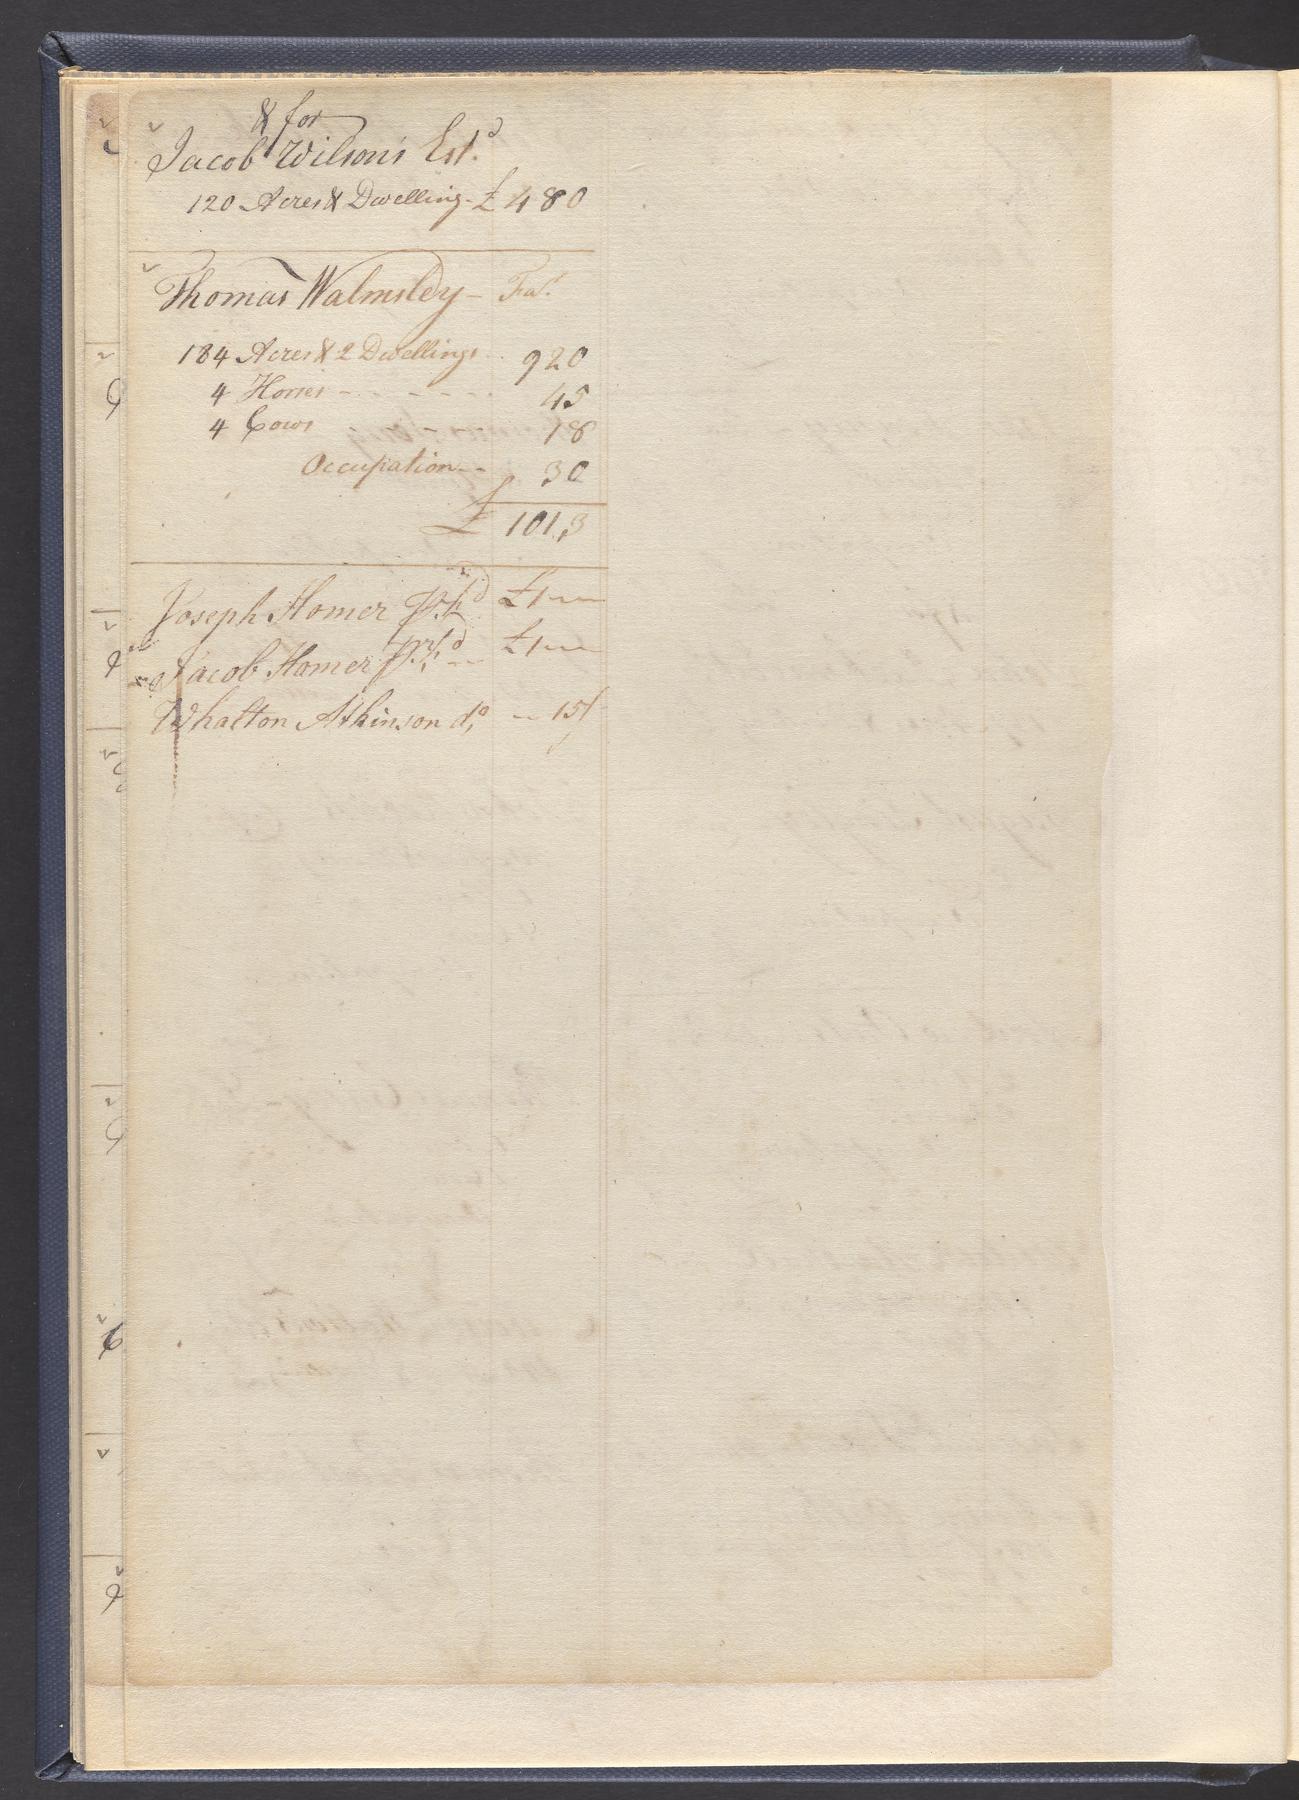 & for
Jacob Wilson's Estd
120 Acres & Dwelling - £ 480
Thomas Walmsley - Far.
184 Acres & 2 Dwellings 920
4 Horses - - - - - - 45
4 Cows 18
Occupation - - 30
£ 1013
Joseph Homer £1
Jacob Homer £1
Whatton Atkinson do - 15/